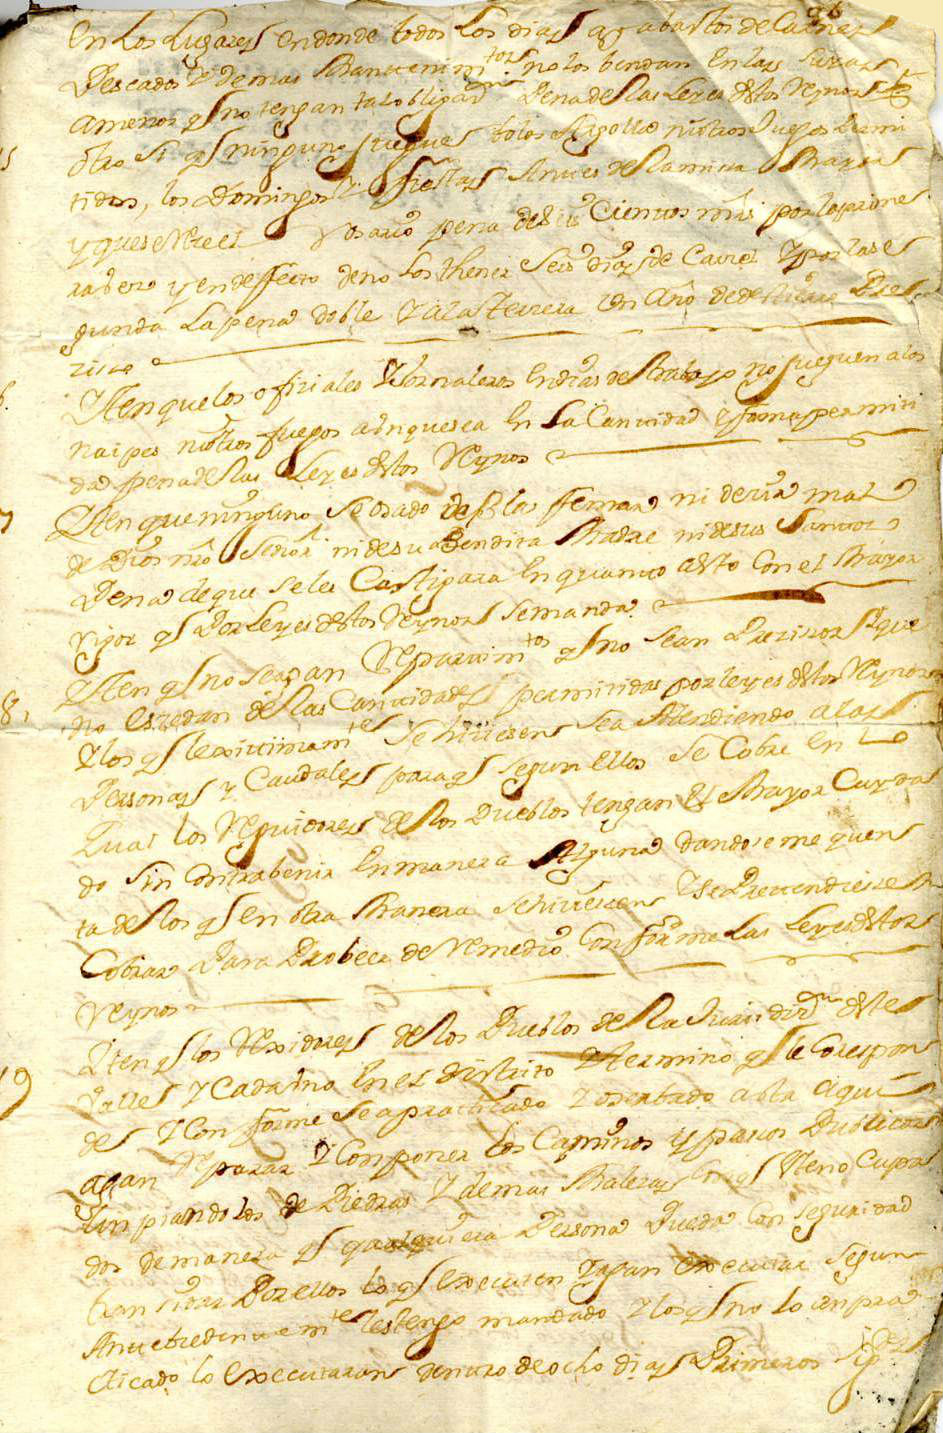 En los Lugares en donde todos los dias ay abastos de Carnes
Pescados y demas Mantenim.tos no los bendan en las
amenos q no tengan tal obligaz.on Pena de las Leyes destos Reynos
otro si q ninguno juegue bolos ni otros Juegos Permi
tidos, los Domingos y fiestas Antes de la missa Maior
y que se Rece el Rosario pena de seis Cientos mrs por la prime
ra bez y en deffecto de no los thener Seis dias de Carzel y por la se
gunda La pena doble y a la tercera un Año de destierro Pres
ziso
Yten que los ofiziales y Jornaleros en dias de trabajo no jueguen a los
naipes ni otros juegos aunque sea En La Cantidad y forma permiti
da pena de las Leyes destos Reynos
7 Yten que ninguno se osado de Blasfemar ni dezir mal
de Dios nro Señor ni de su Bendita Madre ni de sus Santos
Pena de que se les Castigara En quanto a esto Con el Mayor
Rigor q Por Leyes destos Reynos se manda
8, Yten q no se agan Repartim.tos q no sean Prezisos y que
no Exzedan de las Cantidades permitidas por leyes destos Reynos
y los q lexitimam.te se hiziesen sea Atendiendo a las
Personas y Caudales para q segun Ellos se Cobre En Lo
Qual los Rejidores de los Pueblos tengan El Mayor Cuyda
do sin Contrabenir En manera Alguna dandoseme quen
ta de los q En otra Manera se hiziesen y se Pretendiesen
Cobrar Para Probeer de Remedio Conforme las Leyes destos
Reynos
9 Yten q los Rexidores de los Pueblos de la Jurisdiz.on deste
Valle y Cada uno En el distrito y termino q le Corespon
de y Conforme se a practicado y oserbado asta aqui
agan Reparar y Componer los Caminos y pasos Publicos
Linpiandolos de Piedras y demas Malezas
dos de manera q qualquiera Persona Pueda Con seguridad
transitar Por ellos lo q Executen y agan Executar segun
Antezedentem.te les tengo mandado y los q no lo an prac
ticado lo Executaran dentro de ocho dias Primeros sig.tes